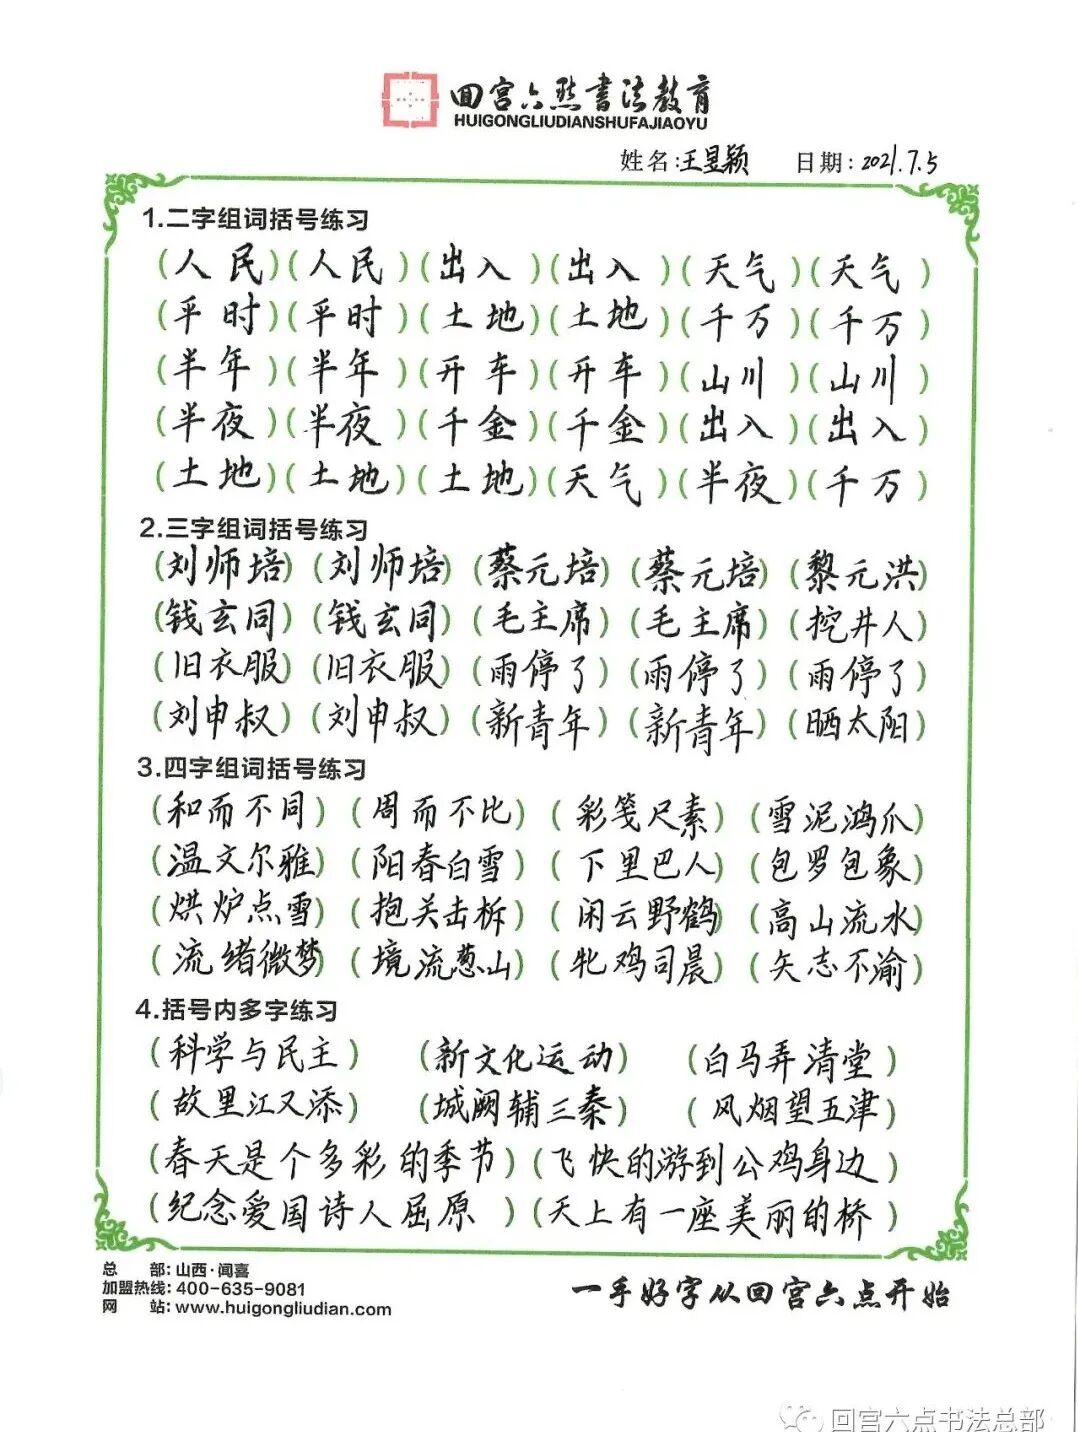 回宫六点书法教育
HUIGONGLIUDIANSHUFAJIAOYU
姓名:王昱颖 日期:2021.7.5
1.二字组词括号练习
(人民)(人民)(出入)(出入)(天气)(天气)
(平时)(平时)(土地)(土地)(千万)(千万)
(半年)(半年)(开车)(开车)(山川)(山川)
(半夜)(半夜)(千金)(千金)(出入)(出入)
(土地)(土地)(土地)(天气)(半夜)(千万)
2.三字组词括号练习
(刘师培)(刘师培)(蔡元培)(蔡元培)(黎元洪)
(钱玄同)(钱玄同)(毛主席)(毛主席)(挖井人)
(旧衣服)(旧衣服)(雨停了)(雨停了)(雨停了)
(刘申叔)(刘申叔)(新青年)(新青年)(晒太阳)
3.四字组词括号练习
(和而不同)(周而不比)(彩笺尺素)(雪泥鸿爪)
(温文尔雅)(阳春白雪)(下里巴人)(包罗包象)
(烘炉点雪)(抱关击柝)(闲云野鹤)(高山流水)
(流绪微梦)(境流葱山)(牝鸡司晨)(矢志不渝)
4.括号内多字练习
(科学与民主)(新文化运动)(白马弄清堂)
(故里江又添)(城阙辅三秦)(风烟望五津)
(春天是个多彩的季节)(飞快的游到公鸡身边)
(纪念爱国诗人屈原)(天上有一座美丽的桥)
总 部:山西·闻喜
加盟热线:400-635-9081
网 站:www.huigongliudian.com
一手好字从回宫六点开始
回宫六点书法总部